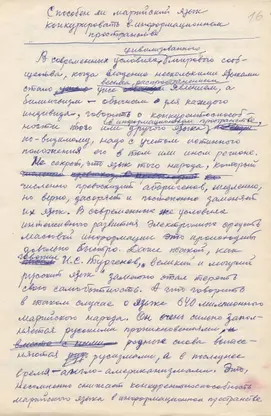 16
Способен ли марийский язык
конкурировать в информационном
пространстве
цивилизованного
В современных условиях мирового сооб-
щества, когда владение несколькими языками
стало явлением, а
билингвизм – обычным для каждого
индивида, говорить о конкурентоспособ-
в информационном пространстве
ности того или другого языка,
по-видимому, надо с учетом истинного
положения он в том или ином регионе.
Не секрет, что язык того народа, который
численно превосходит аборигенов, медленно,
но верно, засоряет и постепенно заменяет
их язык. В современных же условиях
интенсивного развития электронных средств
массовой информации это происходит
довольно быстро. Даже такой, как
говорил И.С. Тургенев, „великий и могучий
русский язык" заметно стал терять
свою самобытность. А что говорить
в таком случае о языке 640 миллионного
марийского народа. Он очень сильно запол-
няется русскими проникновениями,
родные слова вытес-
няются русизмами, а в последнее
время – англо-американизмами. Это,
несомненно снижает конкурентоспособность
марийского языка в информационном пространстве.